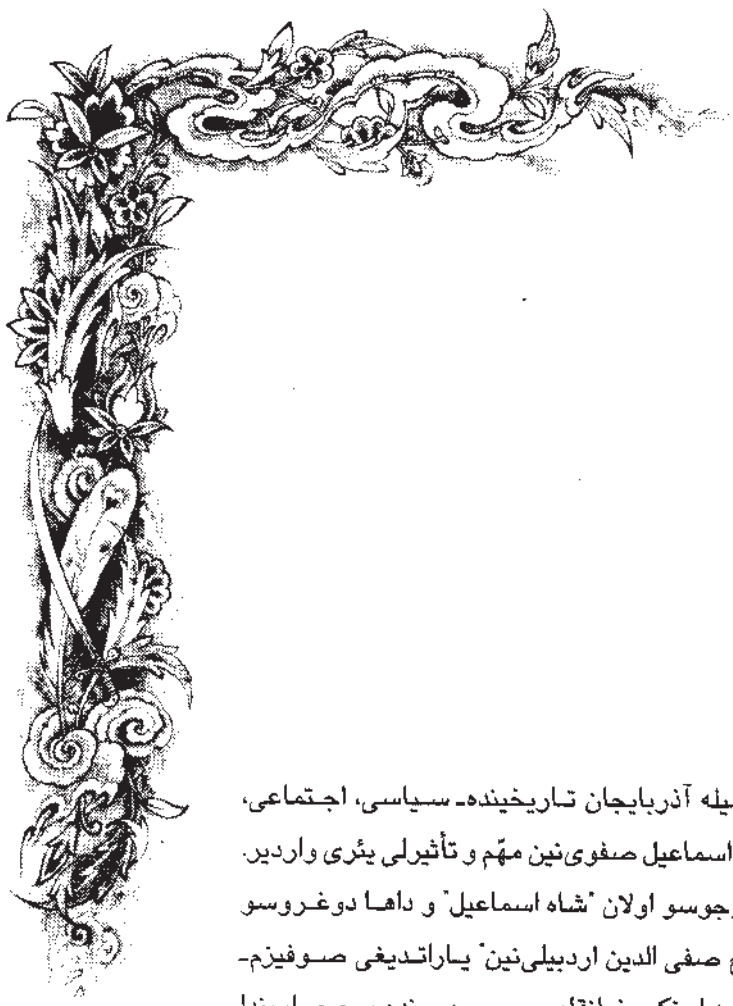 یله آذربایجان تاریخینده۔ سیاسی، اجتماعی،
اسماعیل صفوی‌نین مهّم و تأثیرلی یئری واردیر.
وجوسو اولان "شاه اسماعیل" و داهـا دوغـروسو
صفی الدین اردبیلی‌نین" یـاراتـدیغی صـوفیزم۔